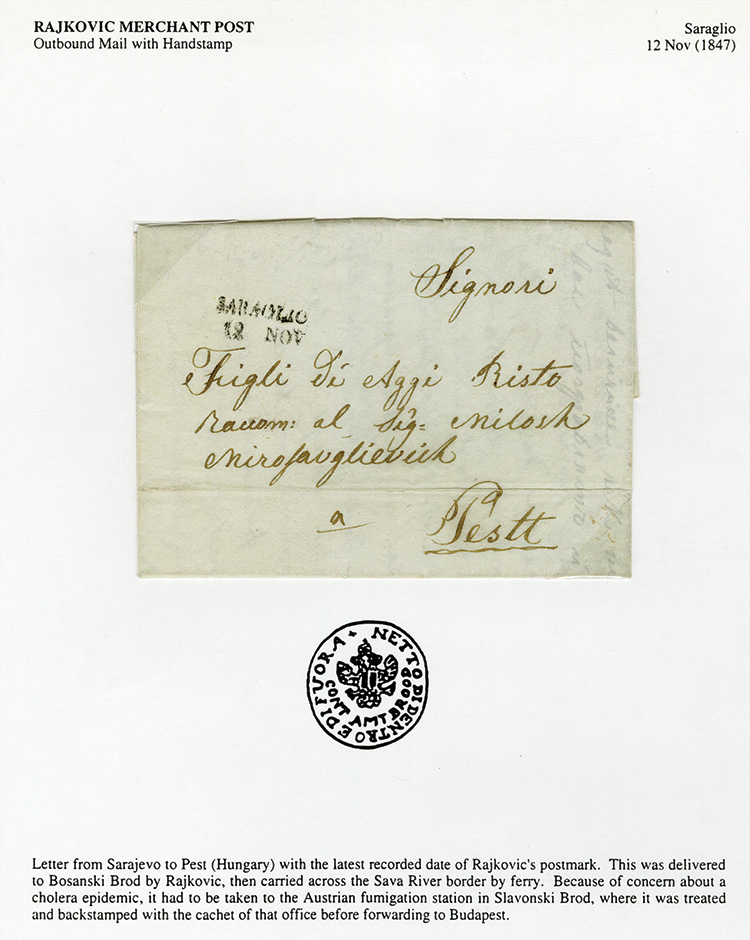 RAJKOVIC MERCHANT POST
Outbound Mail with Handstamp
Saraglio
12 Nov (1847)
Signori
SARAGLIO
12 NOV
Figli di Aggi Risto
Raccom: al Sig= Milosh
Mirosavglievich
a Pestt
NETTO DI DENTRO E DI FUORA +
CONT AMT BROOD
Letter from Sarajevo to Pest (Hungary) with the latest recorded date of Rajkovic's postmark. This was delivered
to Bosanski Brod by Rajkovic, then carried across the Sava River border by ferry. Because of concern about a
cholera epidemic, it had to be taken to the Austrian fumigation station in Slavonski Brod, where it was treated
and backstamped with the cachet of that office before forwarding to Budapest.